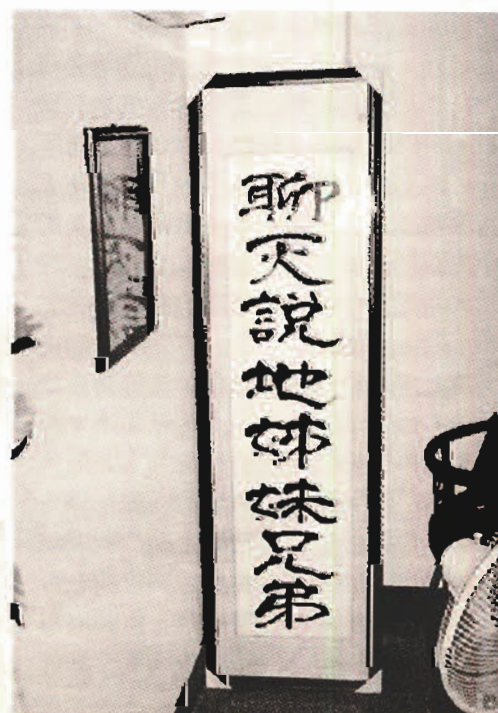 聊天説地姊妹兄弟